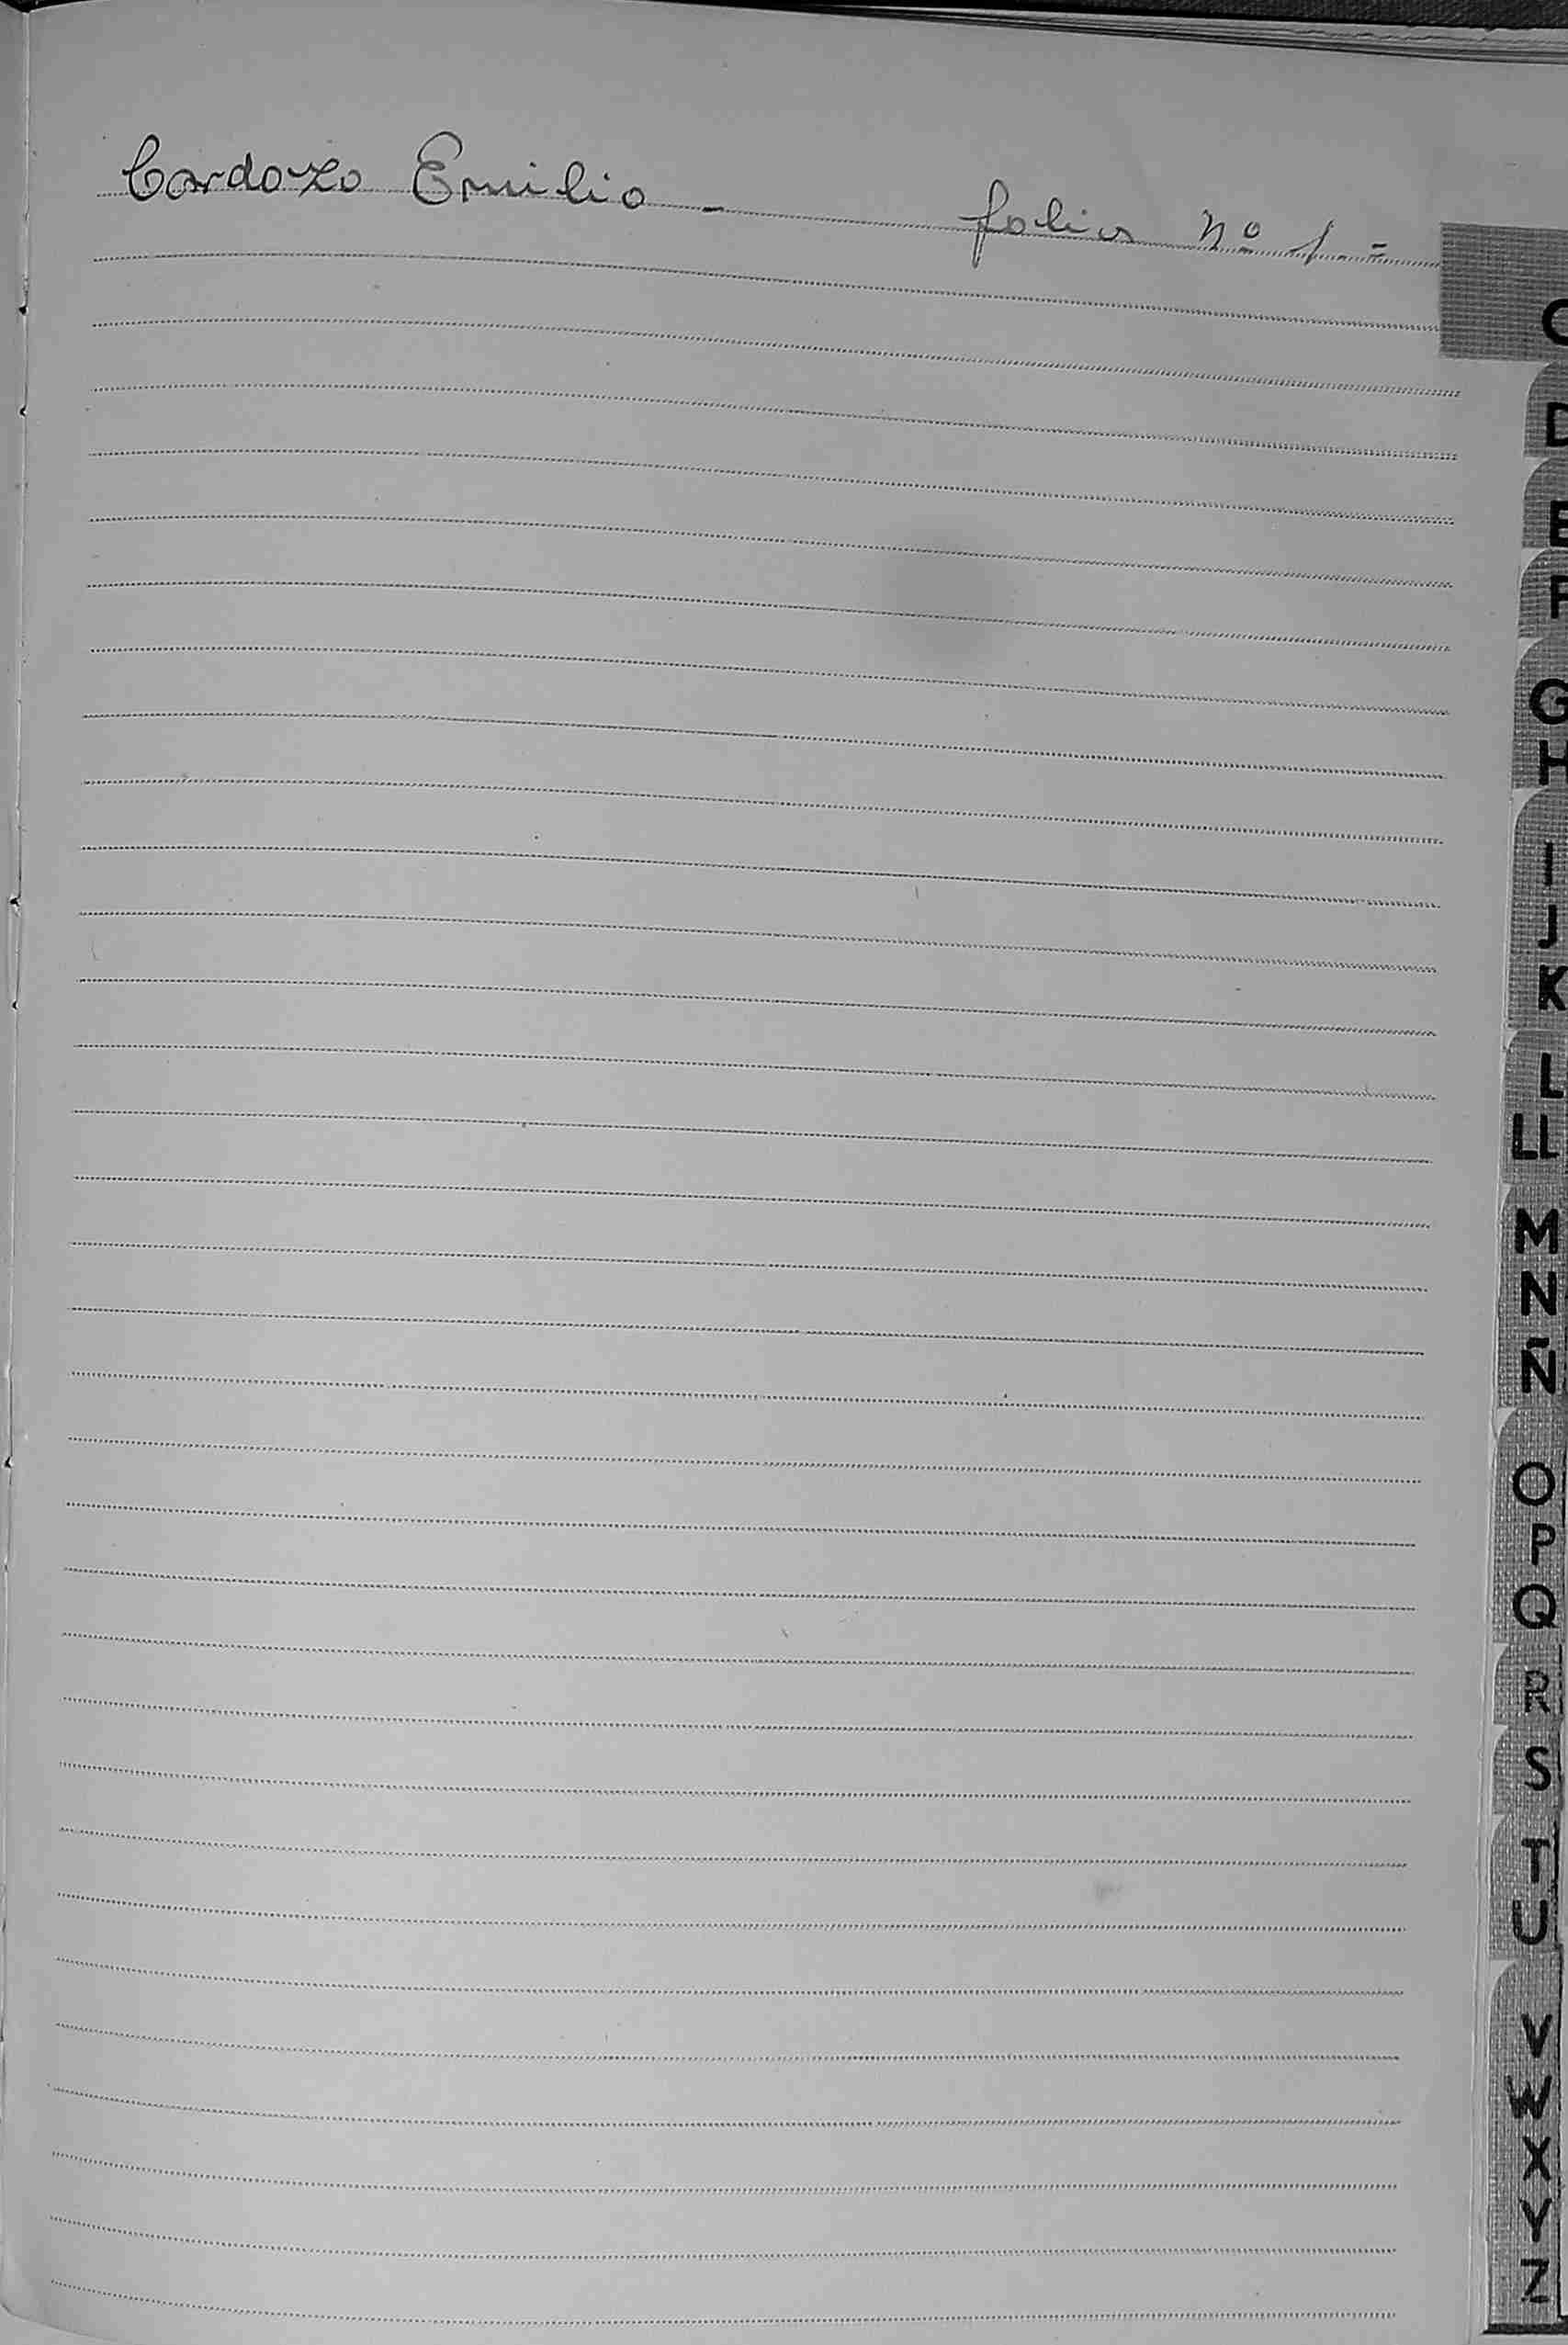 Cardozo Emilio - folio Nº 1 =
C
D
E
F
G
H
I
J
K
L
LL
M
N
Ñ
O
P
Q
R
S
T
U
V
W
X
Y
Z